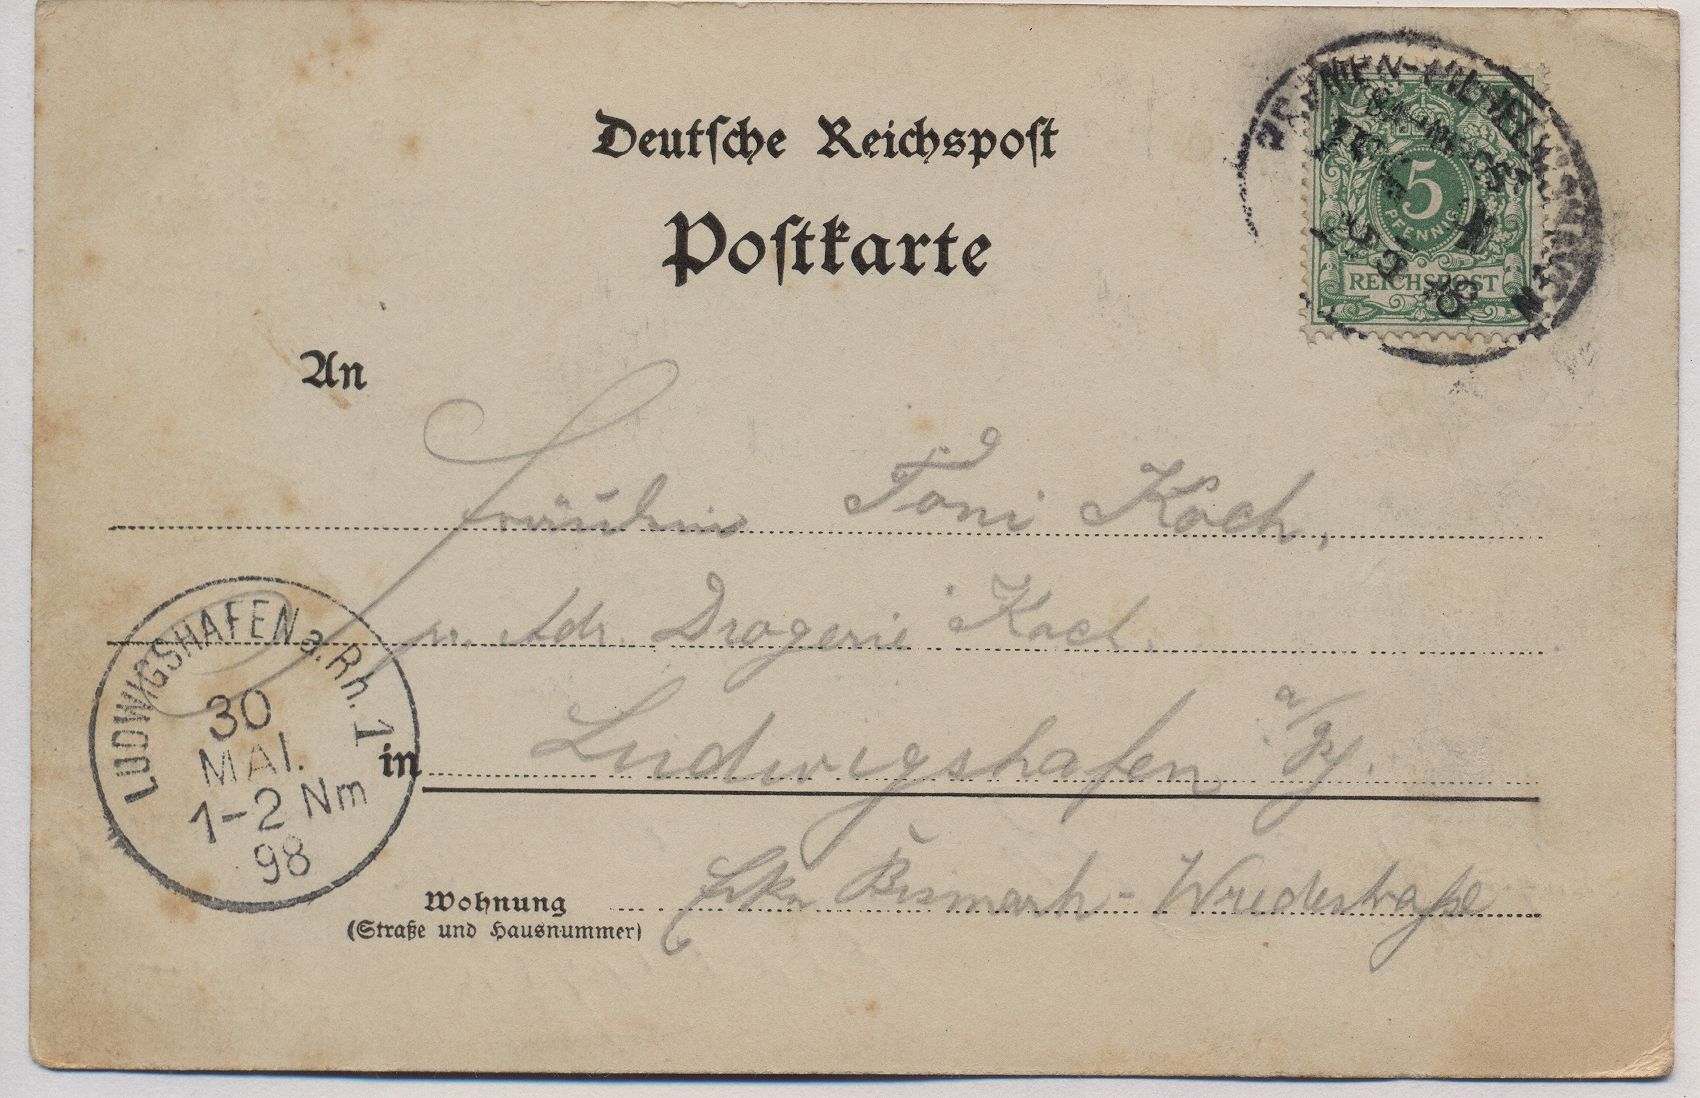 Deutsche Reichspost
Postkarte
5
PFENNIG
REICHSPOST
BREMEN-WILHELMSHAVEN
BAHNPOST
An
Fräulein Toni Koch,
p. Adr. Drogerie Koch.
in Ludwigshafen a/Rh.
Ecke Bismarck-Wredestraße
Wohnung
(Straße und Hausnummer)
LUDWIGSHAFEN a. Rh. 1
30
MAI.
1-2 Nm
98